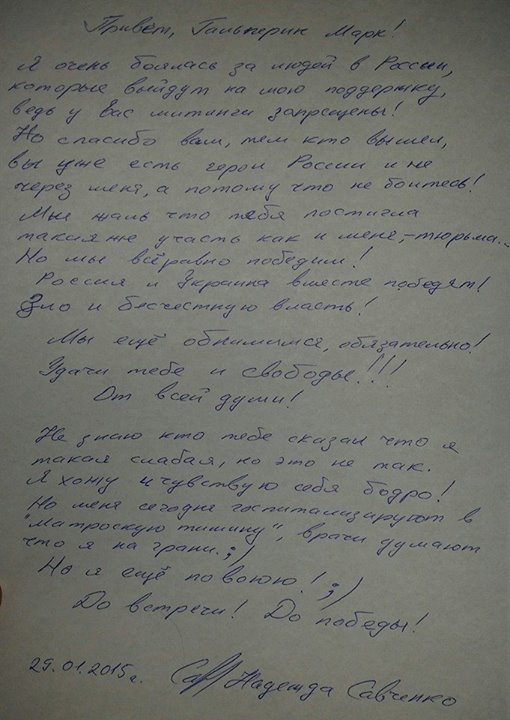 Привет, Гальперин Марк!
Я очень боялась за людей в России,
которые выйдут на мою поддержку,
ведь у Вас митинги запрещены!
Но спасибо вам, тем кто вышел,
вы уже есть герои России и не
через меня, а потому что не боитесь!
Мне жаль что тебя постигла
такая же участь как и меня, - тюрьма...
Но мы всёравно победим!
Россия и Украина вместе победят!
Зло и бесчестную власть!
Мы ещё обнимимся, обязательно!
Удачи тебе и свободы!!!
От всей души!
Не знаю кто тебе сказал что я
такая слабая, но это не так.
Я хожу и чувствую себя бодро!
Но меня сегодня госпитализируют в
"матроскую тишину", врачи думают
что я на грани. ;)
Но я ещё повоюю! ;)
До встречи! До победы!
29.01.2015г. Надежда Савченко